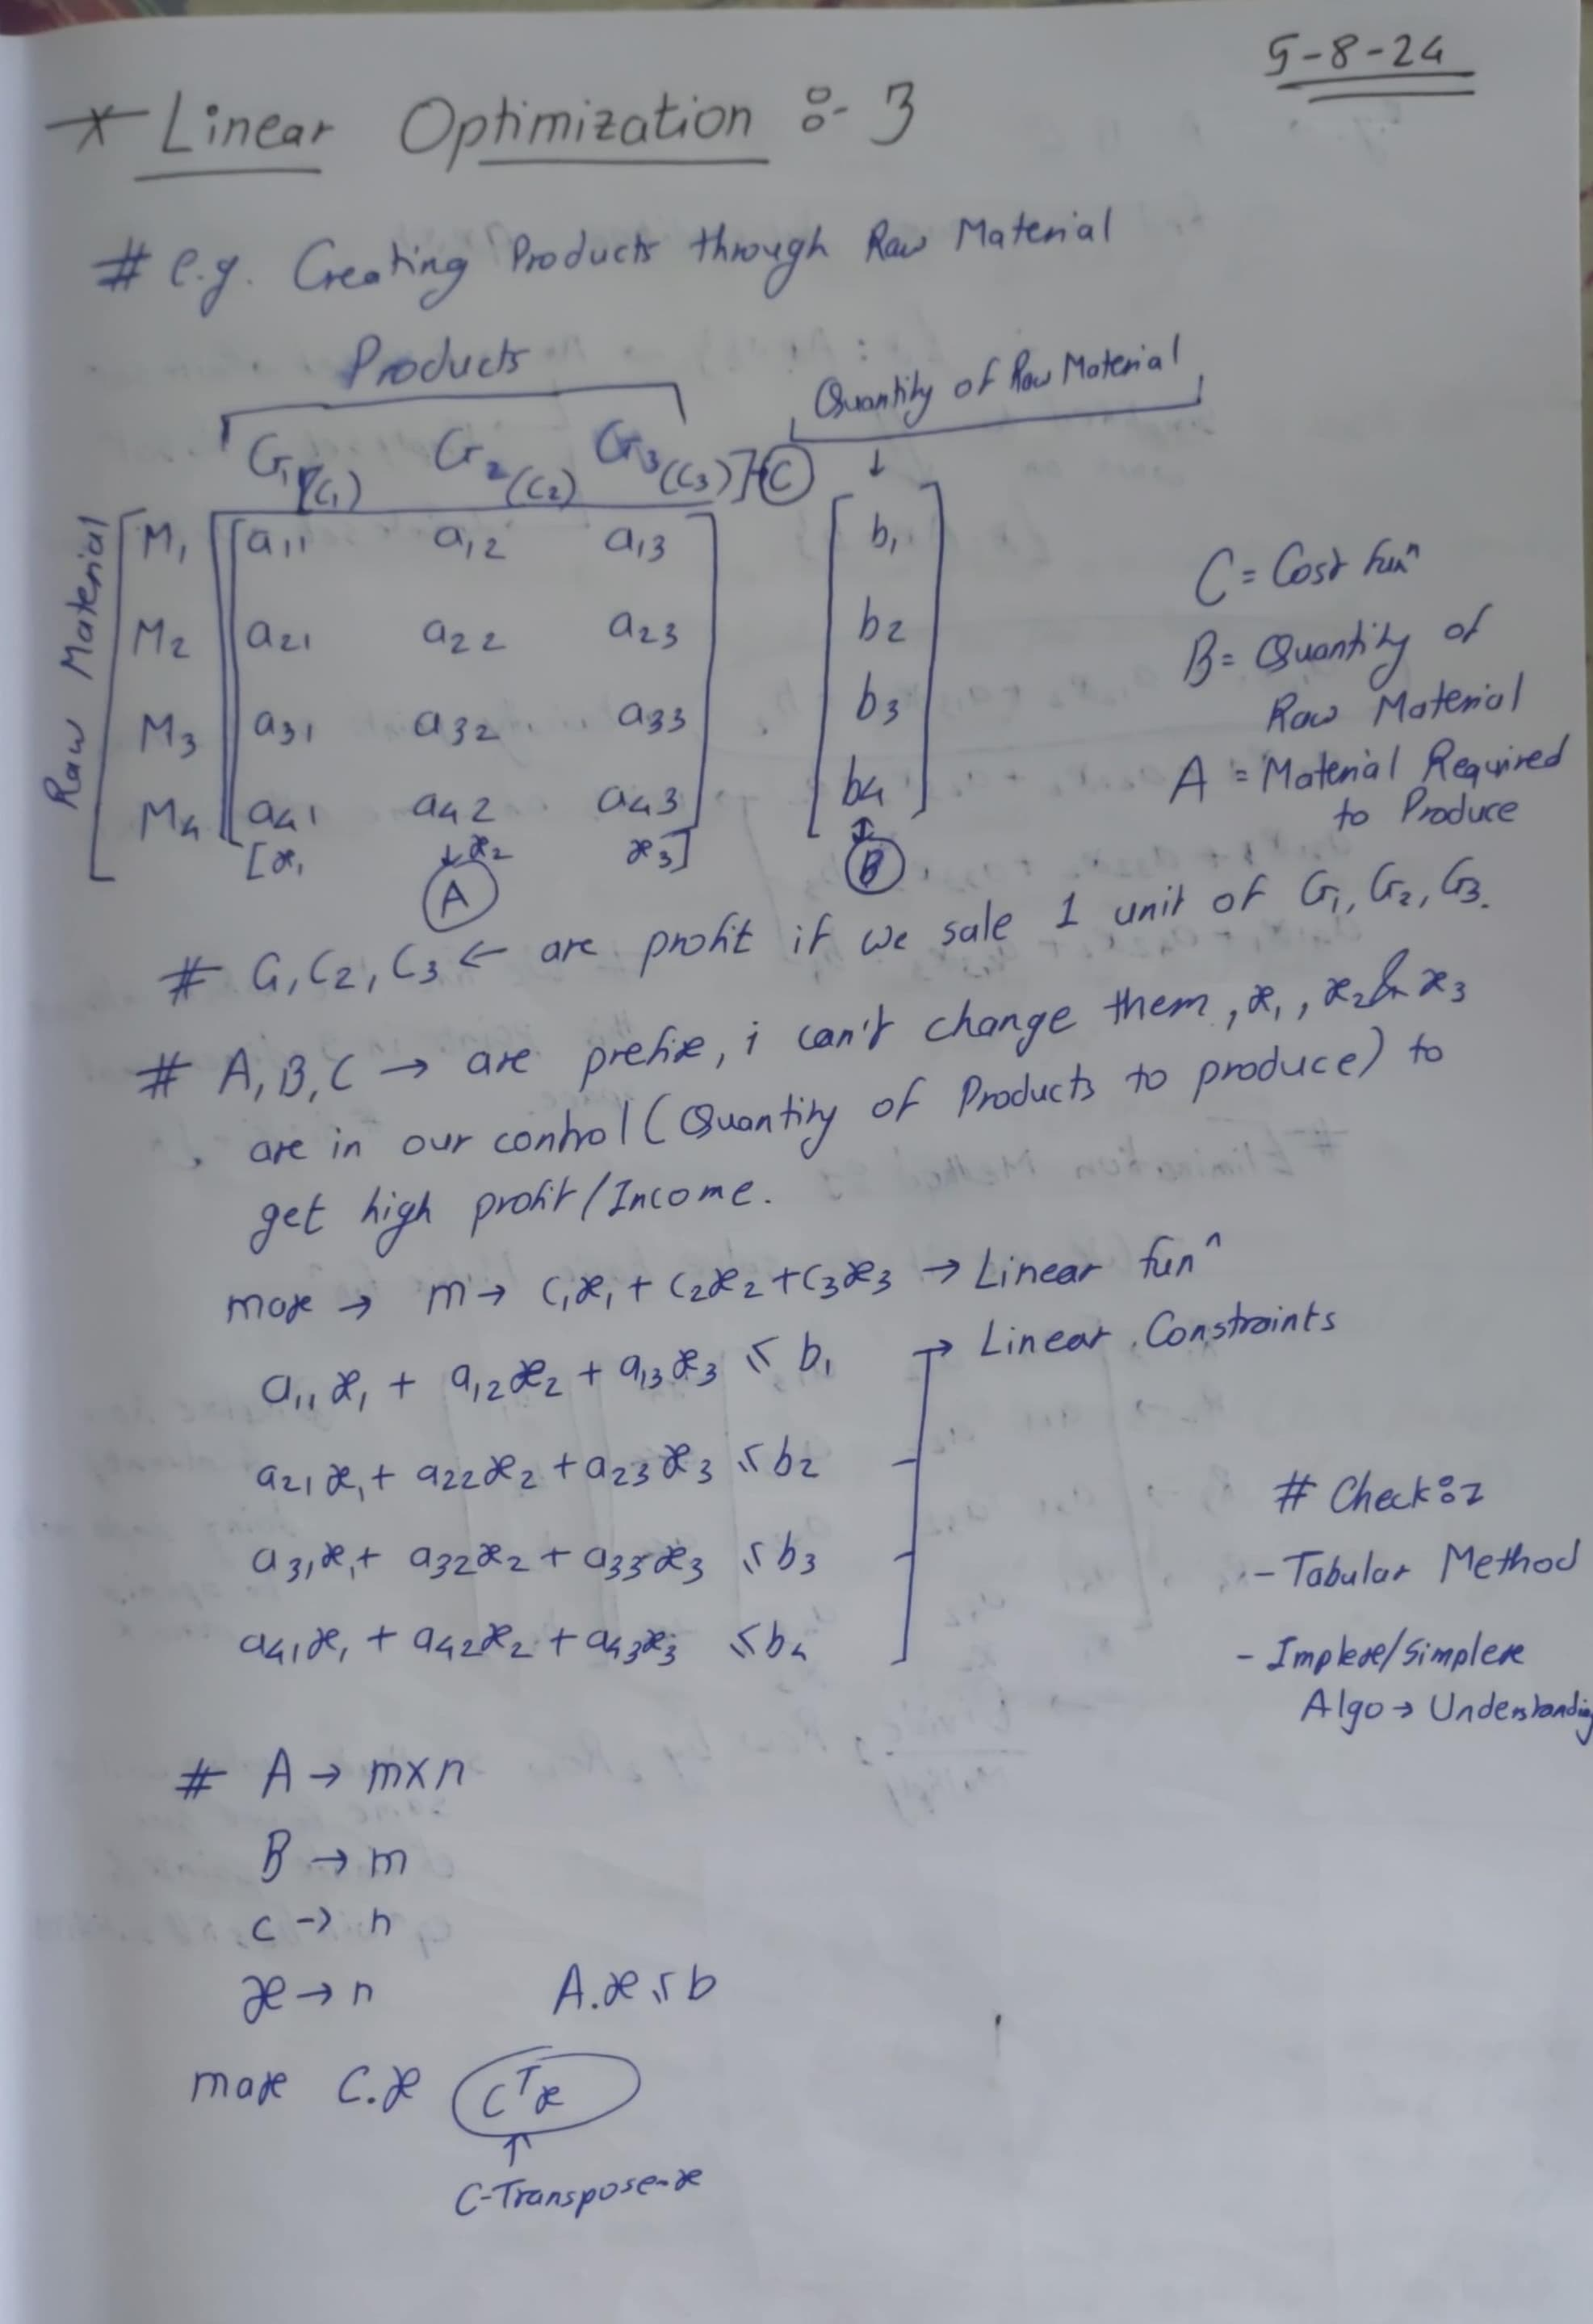 5-8-24
* Linear Optimization :- 3
# e.g. Creating Products through Raw Material
Products
Quantity of Raw Material
G₁(C₁) G₂(C₂) G₃(C₃)] → C ↓
Raw Material
M₁ a₁₁ a₁₂ a₁₃ b₁
M₂ a₂₁ a₂₂ a₂₃ b₂
M₃ a₃₁ a₃₂ a₃₃ b₃
M₄ a₄₁ a₄₂ a₄₃ b₄
[x₁ ↓ x₂ x₃] ↕
A B
C = Cost funⁿ
B = Quantity of
Raw Material
A = Material Required
to Produce
# C₁, C₂, C₃ ← are profit if we sale 1 unit of G₁, G₂, G₃.
# A, B, C → are prefix, i can't change them, x₁, x₂ & x₃
are in our control (Quantity of Products to produce) to
get high profit/Income.
max → m → C₁x₁ + C₂x₂ + C₃x₃ → Linear funⁿ
a₁₁x₁ + a₁₂x₂ + a₁₃x₃ ≤ b₁ → Linear Constraints
a₂₁x₁ + a₂₂x₂ + a₂₃x₃ ≤ b₂
a₃₁x₁ + a₃₂x₂ + a₃₃x₃ ≤ b₃
a₄₁x₁ + a₄₂x₂ + a₄₃x₃ ≤ b₄
# Check:-
- Tabular Method
- Implex/Simplex
Algo → Understanding
# A → m×n
B → m
c → n
x → n A.x ≤ b
max C.x Cᵀx
↑
C-Transpose-x